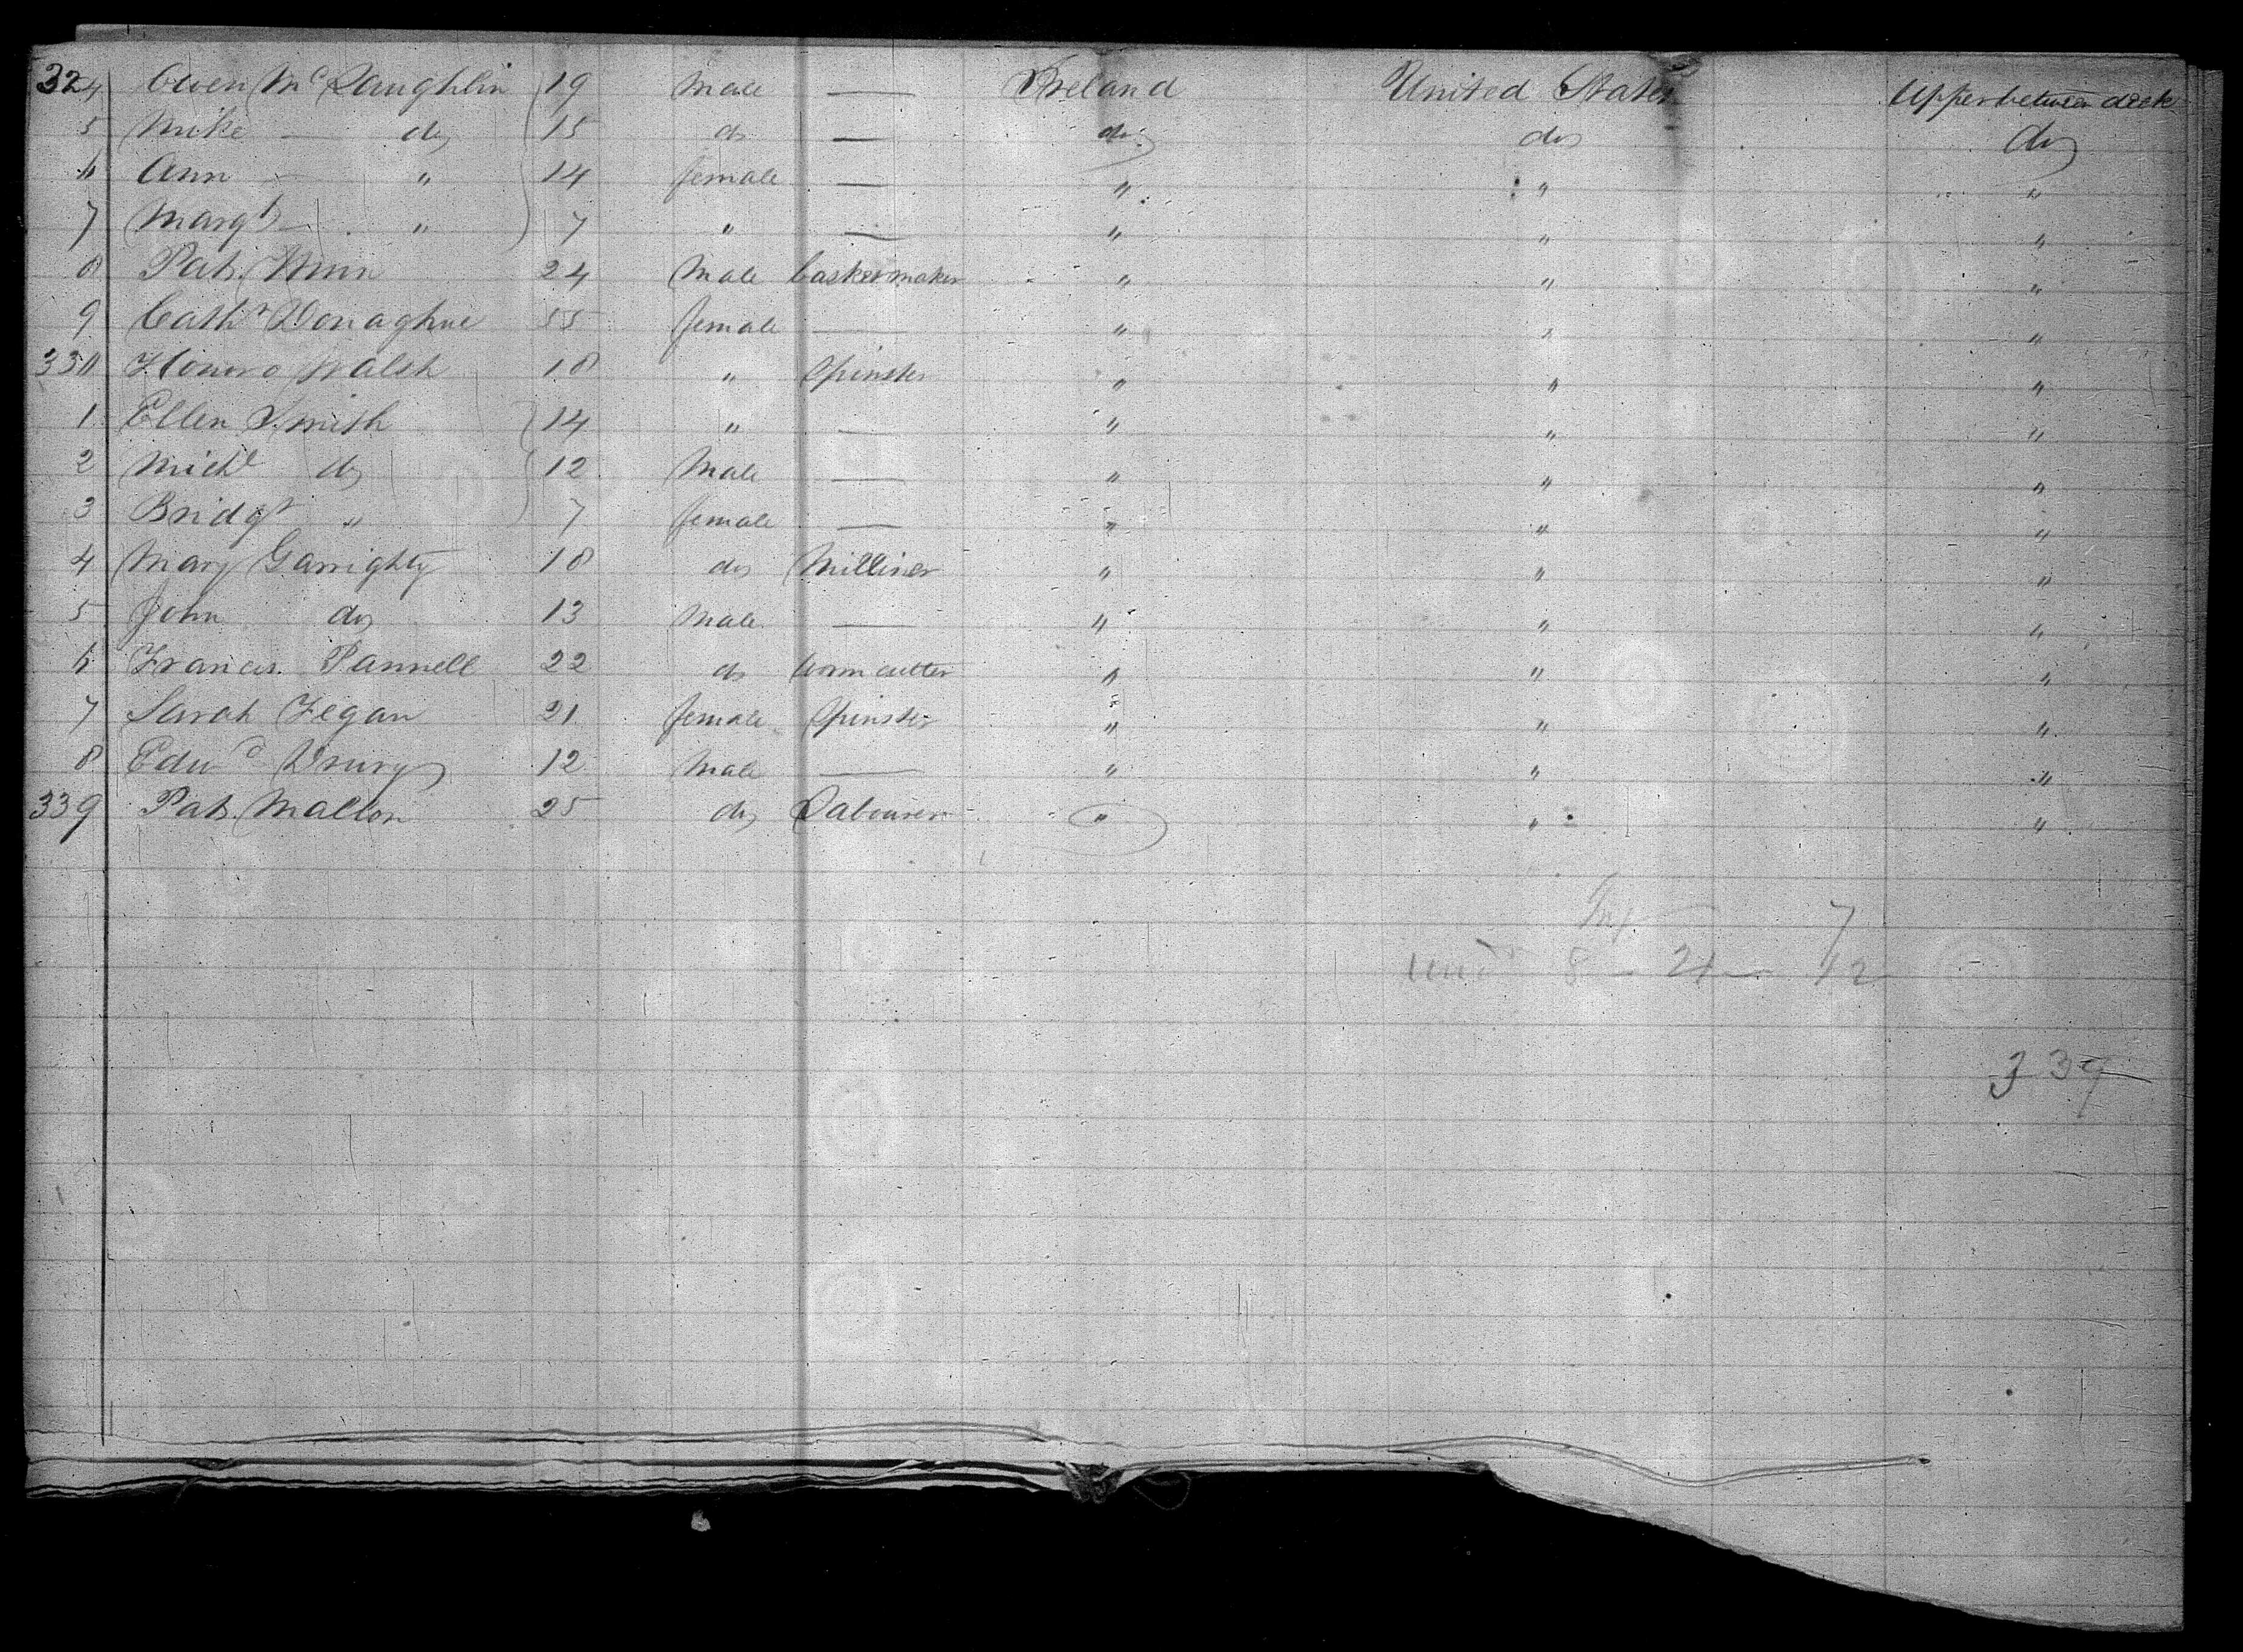 324 Owen McLaughlin 19 Male — Ireland United States Upper between deck
5 Mike — do 15 do — do do do
6 Ann — " 14 female — " " "
7 Margt — " 7 " — " " "
8 Pat. 24 Male basketmaker " " "
9 Cathn Donaghue 55 female — " " "
330 Honora Walsh 18 " Spinster " " "
1 Ellen Smith 14 " — " " "
2 Michl do 12 Male — " " "
3 Bridgt " 7 female — " " "
4 Mary Garrighty 18 do Milliner " " "
5 John do 13 Male — " " "
6 Francis Pannell 22 do cutter " " "
7 Sarah Fegan 21 female Spinster " " "
8 Edwd Drury 12 Male — " " "
339 Pat. Mallon 25 do Labourer " " "
7
8 — 21 — 12
339